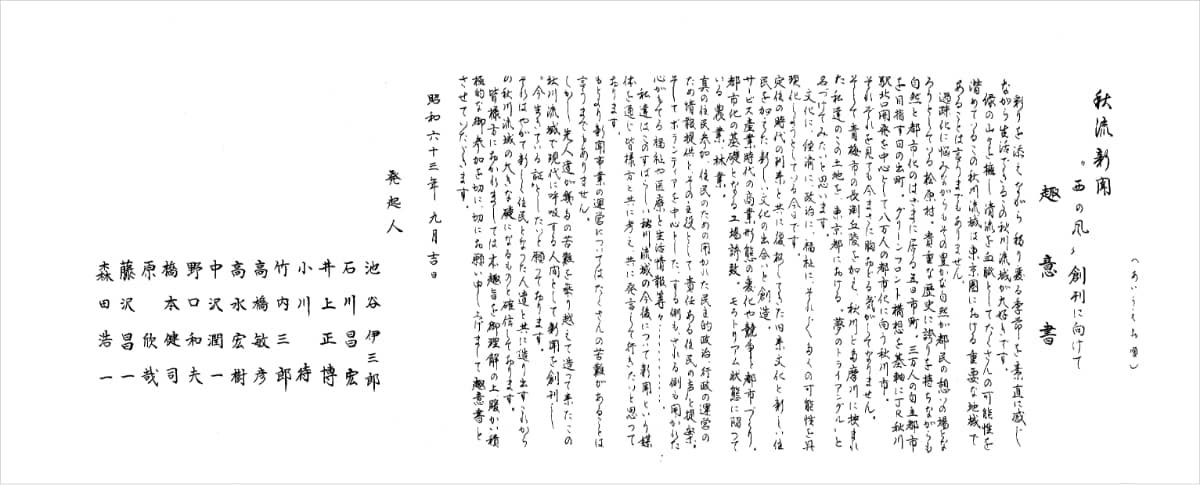 秋流新聞
“西の風”創刊に向けて
趣意書
(あいうえお順)
彩りを添えながら移り変る季節を素直に感じ
ながら生活できるこの秋川流域が大好きです。
緑の山々を擁し清流を血脈としてたくさんの可能性を
潜めているこの秋川流域は東京圏における重要な地域で
あることは言うまでもありません。
過疎化に悩みながらもその豊かな自然が都民の憩いの場とな
ろうとしている桧原村。貴重な歴史に誇りを持ちながらも
自然と都市化のはざまに居る五日市町、三万人の自立都市
を目指す日の出町。グリーンフロント構想を基軸にJR秋川
駅北口開発を中心として八万人の都市化に向う秋川市。
それぞれを見ても今まさに胸おどる気がしてなりません。
そして青梅市の長渕丘陵を加え、秋川と多摩川に挟まれ
た私達のこの土地を東京都における“夢のトライアングル”と
名づけてみたいと思います。
文化に、経済に、政治に、福祉にそれぞれ多くの可能性を再
現化しようとしている今日です。
定住の時代の到来と共に復起してきた旧来文化と新しい住
民を加えた新しい文化の出会いと創造。
サービス産業時代の商業形態の変化や競争と都市づくり。
都市化の基礎となる工場誘致。モラトリアム状態に陥って
いる農業、林業。
真の住民参加、住民のための開かれた民主的政治、行政の運営の
ため情報提供とその主役として責任ある住民の声と提案。
そしてボランティアを中心とした、する側もされる側も開かれた
心がもてる福祉や医療と生活情報等々‥‥‥‥
私達はこのすばらしい秋川流域の今後について新聞という媒
体を通じ皆様方と共に考え、共に発言して行きたいと思って
おります。
もとより新聞事業の運営についてはたくさんの苦難があることは
言うまでもありません。
しかし、先人達が幾多の苦難を乗り越えて造って来たこの
秋川流域で現代に呼吸する人間として新聞を創刊し
“今生きている証”としたいと願っております。
それはやがて新しく住民となった人達と共に造り出すこれから
の秋川流域の大きな礎になるものと確信しております。
皆様方におかれましては本趣旨を御理解の上暖かい積
極的な御参加を切に切にお願い申し上げまして趣意書と
させていただきます。
昭和六十三年九月吉日
発起人
池谷伊三郎
石川昌宏
井上正博
小川待
竹内三郎
高橋敏彦
高永宏樹
中沢潤一
野口和夫
橋本健司
原欣哉
藤沢昌一
森田浩一